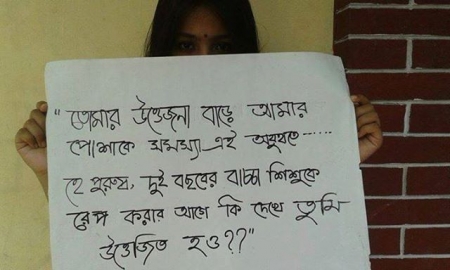 "তোমার উত্তেজনা বাড়ে আমার
পোশাকে সমস্যা এই অযুহাতে......
হে পুরুষ, দুই বছরের বাচ্চা শিশুকে
রেপ করার আগে কি দেখে তুমি
উত্তেজিত হও??"